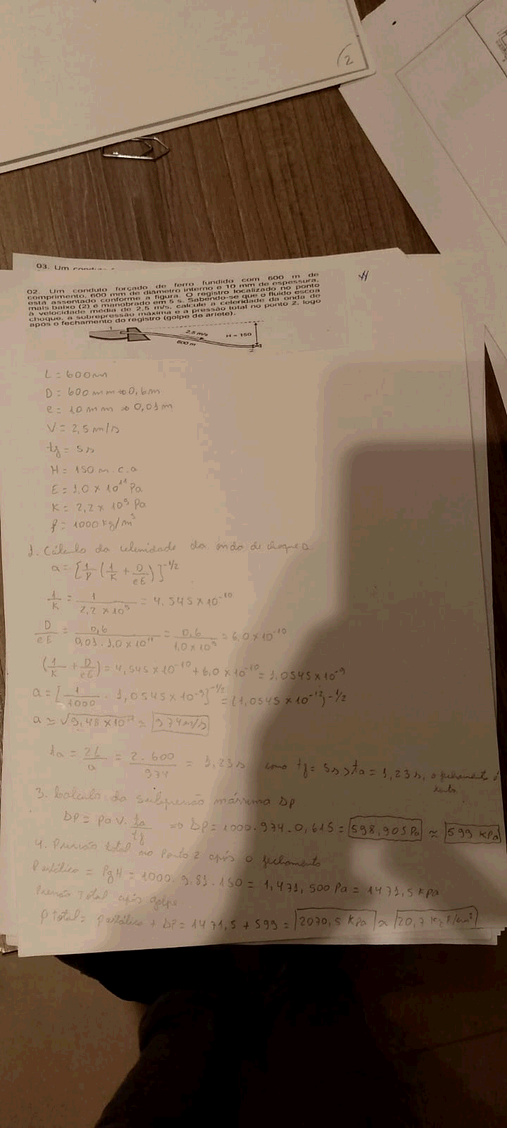 2
03. Um
02. Um conduto forçado de ferro fundido com 600 m de
comprimento, 600 mm de diâmetro interno e 10 mm de espessura,
está assentado conforme a figura. O registro localizado no ponto
mais baixo (2) é manobrado em 5 s. Sabendo-se que o fluido escoa
à velocidade média de 2,5 m/s, calcule a celeridade da onda de
choque, a sobrepressão máxima e a pressão total no ponto 2, logo
após o fechamento do registro (golpe de aríete).
1
2,5 m/s
H = 150
600 m
2
L = 600m
D = 600 mm → 0,6m
e = 10 mm → 0,01 m
V = 2,5 m/s
tf = 5s
H = 150 m.c.a
E = 1,0 x 10¹¹ Pa
K = 2,2 x 10⁹ Pa
ρ = 1000 kg/m³
1. Cálculo da celeridade da onda de choque
a = [1/ρ (1/K + D/eE)]^-1/2
1/K = 1/2,2 x 10⁹ = 4,545 x 10^-10
D/eE = 0,6/0,01 . 1,0 x 10¹¹ = 0,6/1,0 x 10⁹ = 6,0 x 10^-10
(1/K + D/eE) = 4,545 x 10^-10 + 6,0 x 10^-10 = 1,0545 x 10^-9
a = [1/1000 . 1,0545 x 10^-9]^-1/2 = (1,0545 x 10^-12)^-1/2
a ≈ √9,48 x 10¹¹ ≈ 974 m/s
ta = 2L/a = 2 . 600/974 = 1,23 s como tf = 5s > ta = 1,23 s, o fechamento é
lento
3. Cálculo da máxima ΔP
ΔP = ρaV . ta/tf ⇒ ΔP = 1000 . 974 . 0,615 = 598,905 Pa ≈ 599 KPa
4. Pressão total no Ponto 2 após o fechamento
P estático = ρgH = 1000 . 9,81 . 150 = 1,471,500 Pa = 1471,5 KPa
Pressão Total após golpe
P total = P estático + ΔP = 1471,5 + 599 = 2070,5 KPa ≈ 20,7 Kgf/cm²